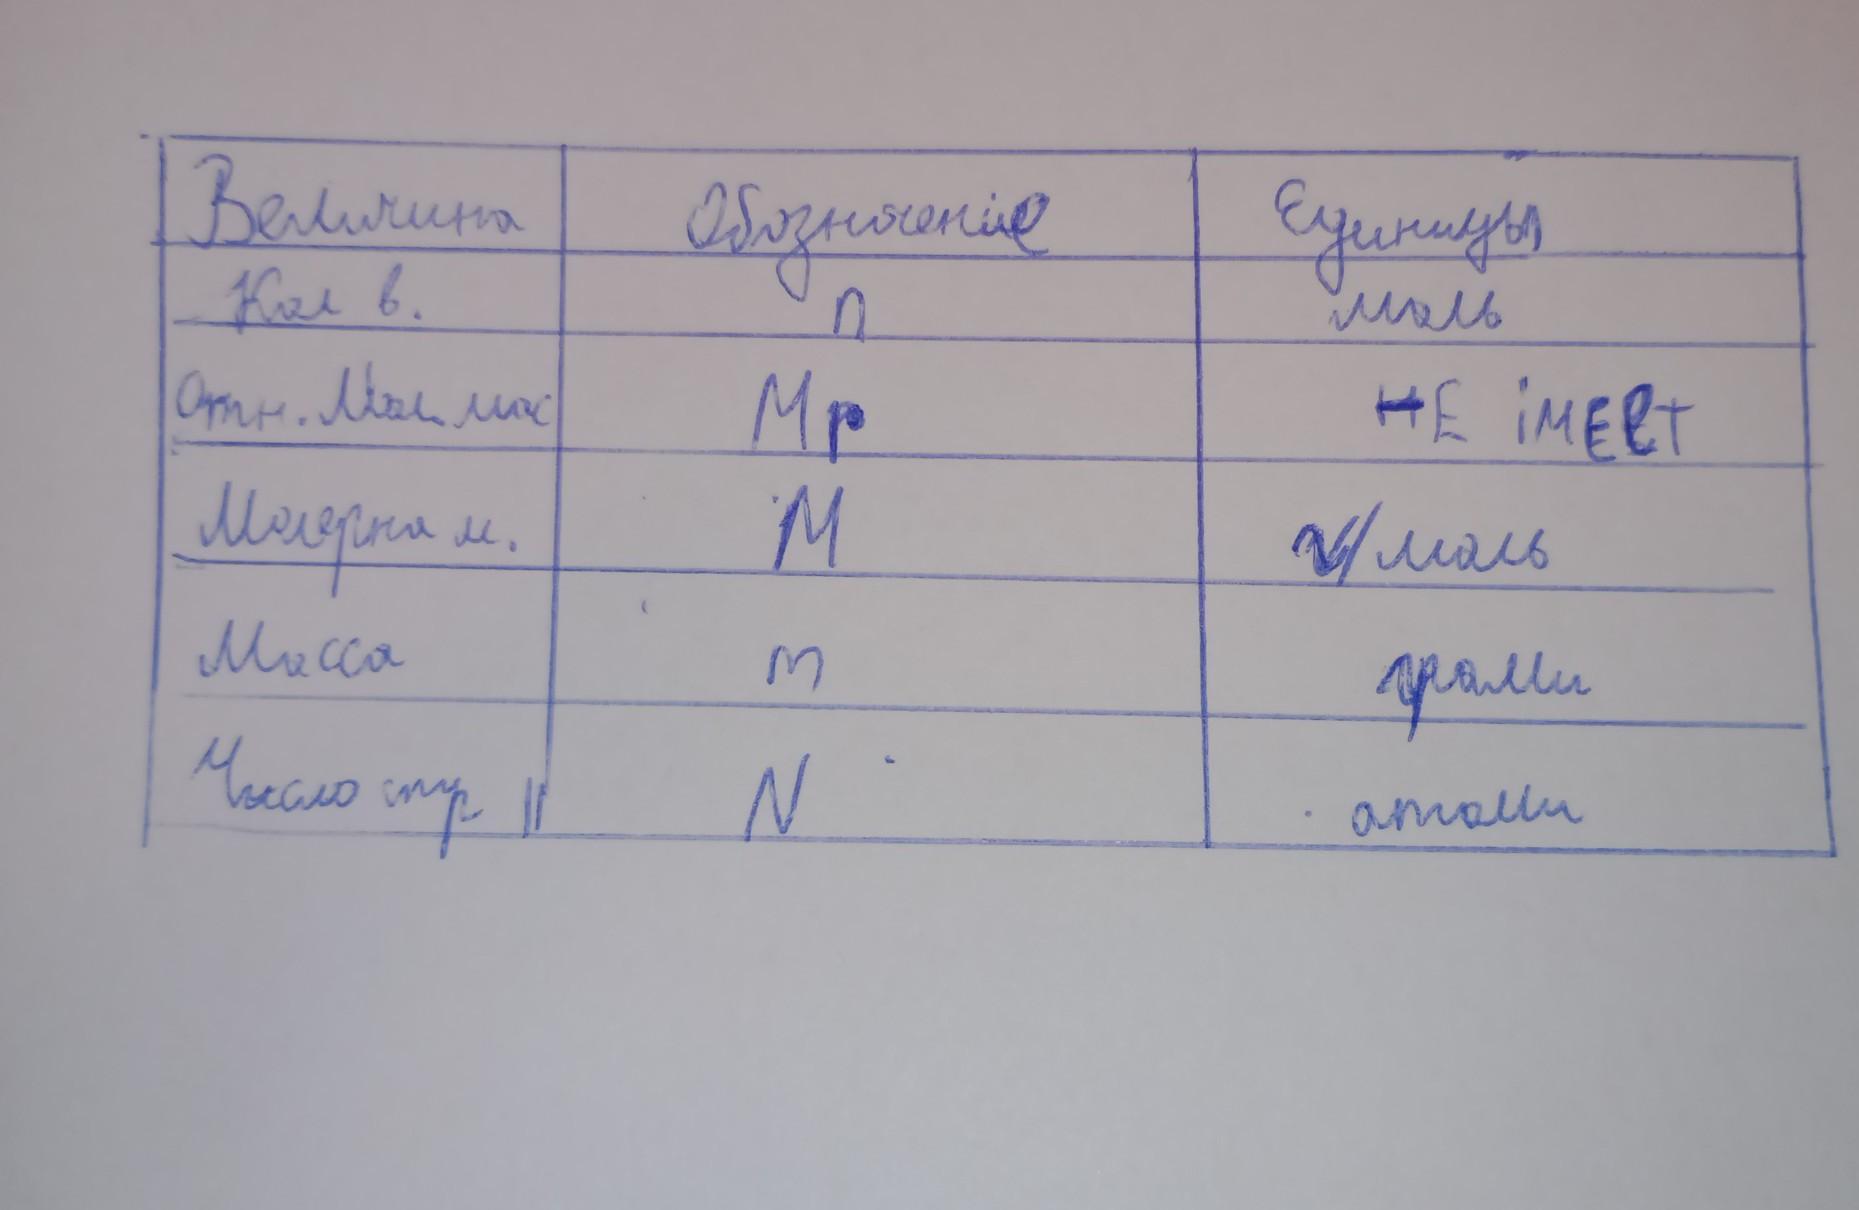 Величина Обозначение Единицы
Кол в. n моль
Отн. Мол. мас Mр НЕ імеет
Молярна м. M г/моль
Масса m грами
Число стр || N атоми